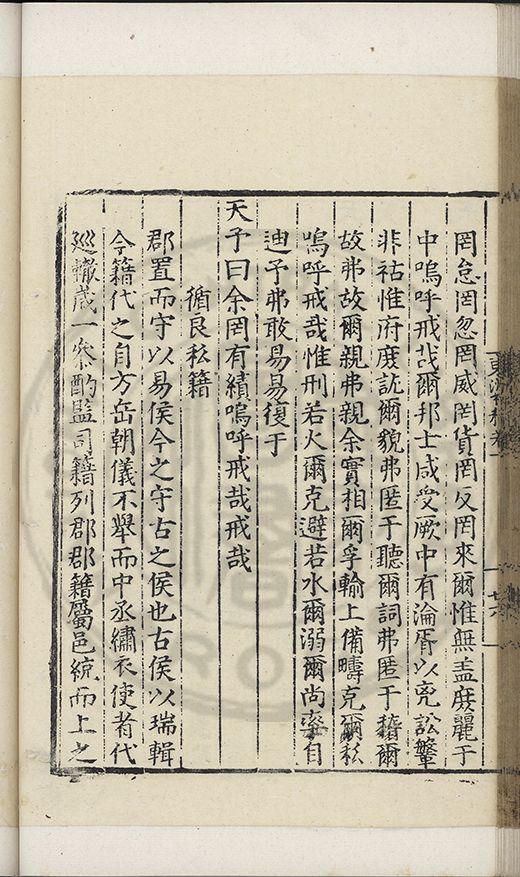 罔怠罔忽罔威罔貨罔反罔來爾惟無盍庶麗于
中嗚呼戒哉爾邦士咸受厥中有淪胥以兗訟
非祜惟府庶訧爾貌弗匿于聽爾詞弗匿于稽爾
故弗故爾親弗親余實相爾孚輸上備疇克爾私
嗚呼戒哉惟刑若火爾克避若水爾溺爾尚率自
迪予弗敢易易復于
天子曰余罔有績嗚呼戒哉戒哉
循良私籍
郡置而守以易侯今之守古之侯也古侯以瑞輯
今籍代之自方岳朝儀不舉而中丞繡衣使者代
巡轍歲一叅酌監司籍列郡郡籍屬邑統而上之